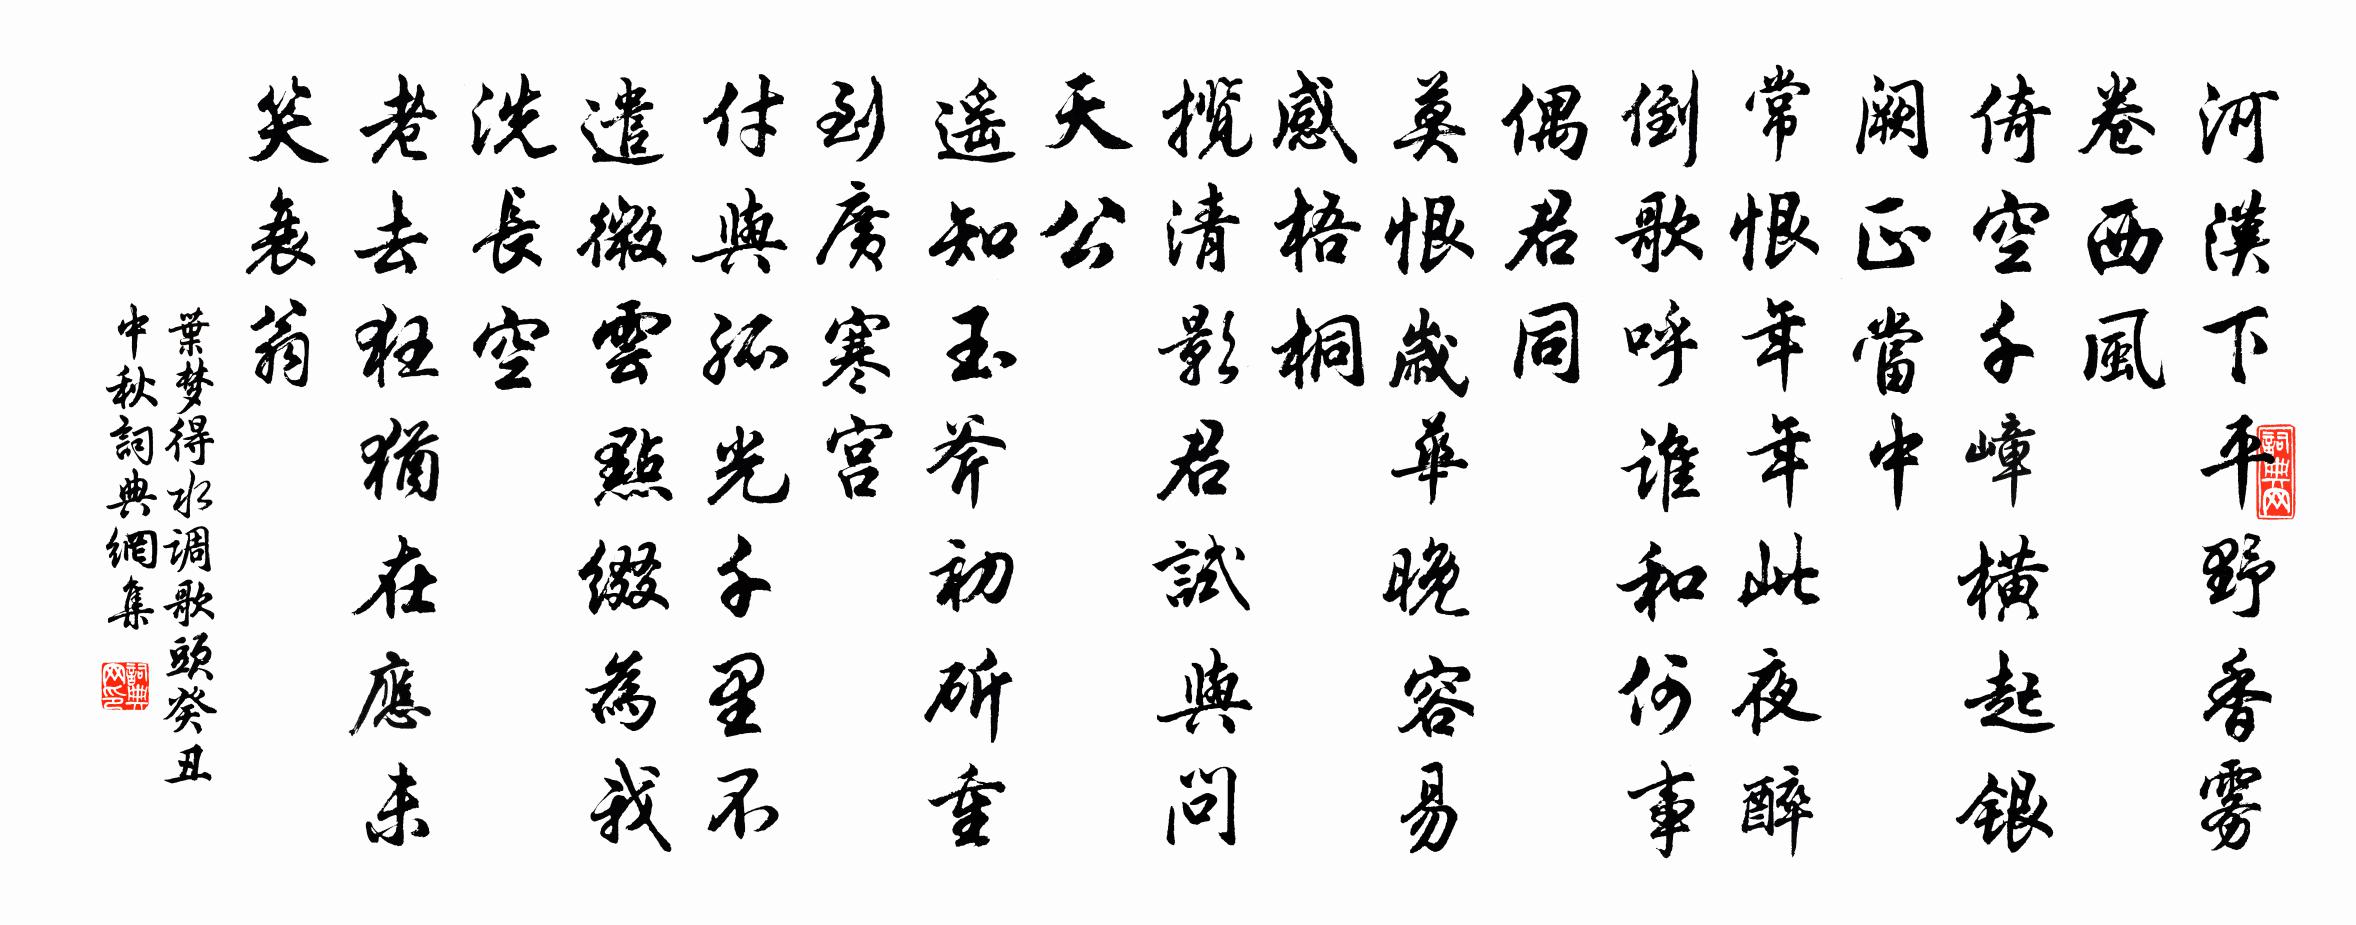 河漢下平野香雾
卷西風
倚空千嶂橫起銀
闕正當中
常恨年年此夜醉
倒歌呼誰和何事
偶君同
莫恨歲華晚容易
感梧桐
攬清影君試與問
天公
遥知玉斧初斫重
到廣寒宫
付與孤光千里不
遣微雲點綴為我
洗長空
老去狂猶在應未
笑衰翁
葉梦得水调歌頭癸丑
中秋詞典網集
詞典网
詞典网印